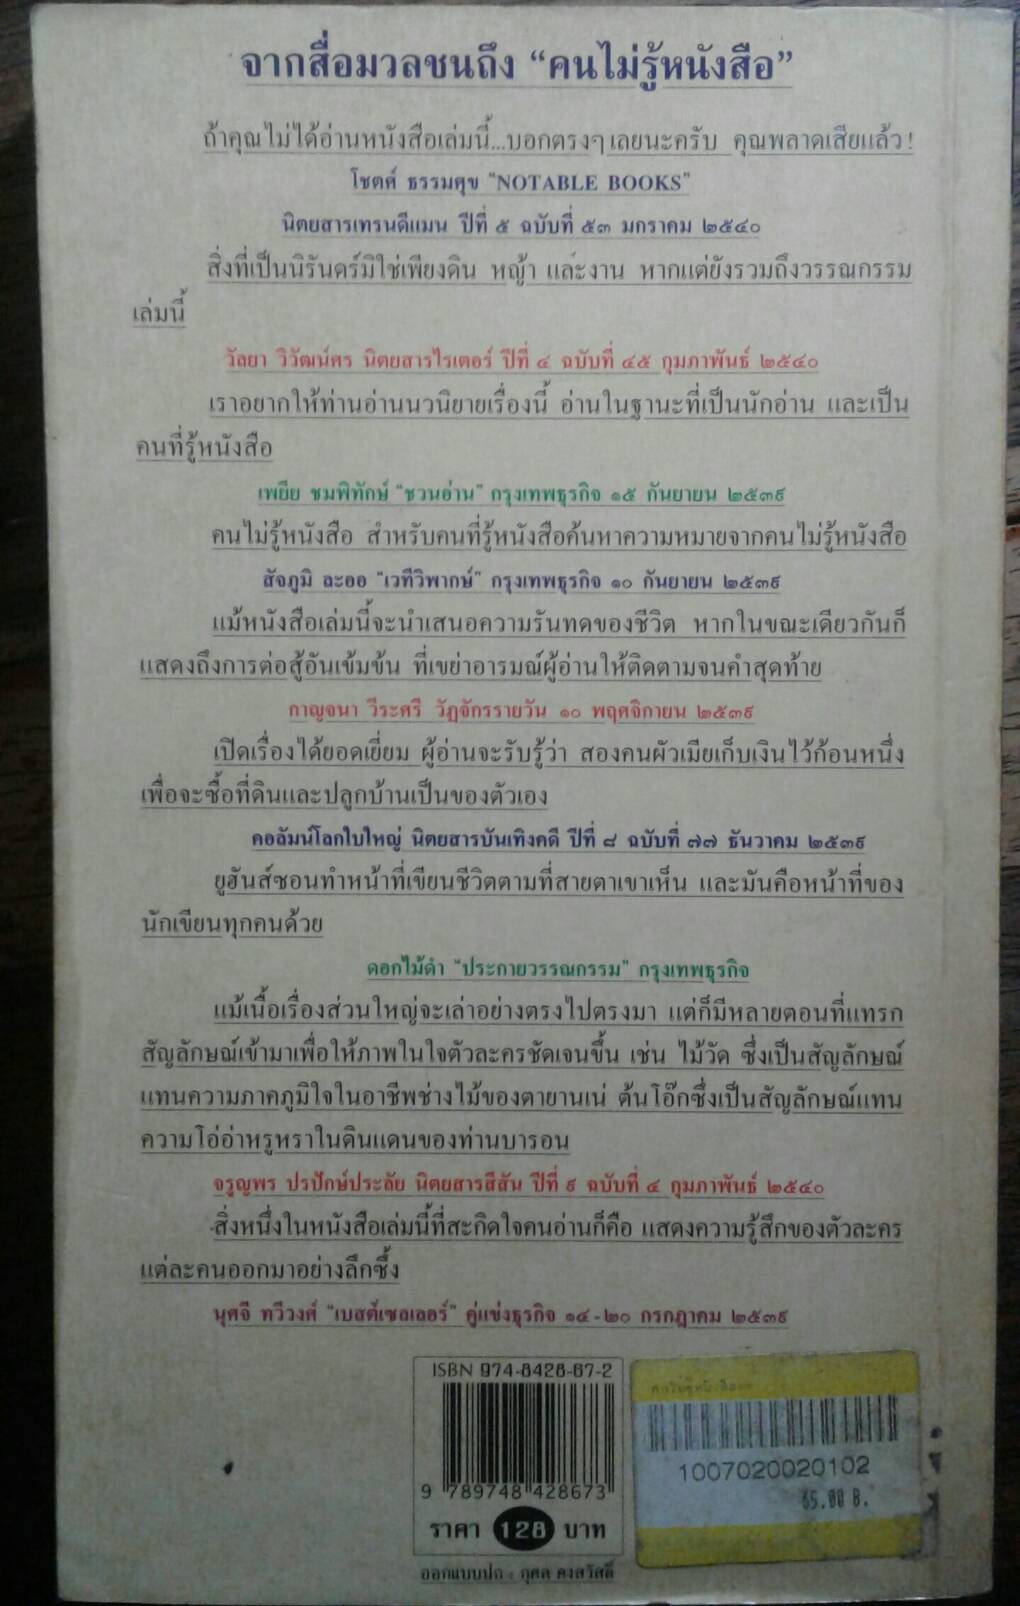 จากสื่อมวลชนถึง “คนไม่รู้หนังสือ”
ถ้าคุณไม่ได้อ่านหนังสือเล่มนี้...บอกตรงๆ เลยนะครับ คุณพลาดเสียแล้ว!
โชตศ์ ธรรมศุข "NOTABLE BOOKS"
นิตยสารเทรนดีแมน ปีที่ ๕ ฉบับที่ ๕๓ มกราคม ๒๕๔๐
สิ่งที่เป็นนิรันดร์มิใช่เพียงดิน หญ้า และงาน หากแต่ยังรวมถึงวรรณกรรม
เล่มนี้
วัลยา วิวัฒน์ศร นิตยสารไรเตอร์ ปีที่ ๔ ฉบับที่ ๔๕ กุมภาพันธ์ ๒๕๔๐
เราอยากให้ท่านอ่านนวนิยายเรื่องนี้ อ่านในฐานะที่เป็นนักอ่าน และเป็น
คนที่รู้หนังสือ
เพยีย ชมพิทักษ์ "ชวนอ่าน" กรุงเทพธุรกิจ ๑๕ กันยายน ๒๕๓๙
คนไม่รู้หนังสือ สำหรับคนที่รู้หนังสือค้นหาความหมายจากคนไม่รู้หนังสือ
สัจภูมิ ละออ "เวทีวิพากษ์" กรุงเทพธุรกิจ ๑๐ กันยายน ๒๕๓๙
แม้หนังสือเล่มนี้จะนำเสนอความรันทดของชีวิต หากในขณะเดียวกันก็
แสดงถึงการต่อสู้อันเข้มข้น ที่เขย่าอารมณ์ผู้อ่านให้ติดตามจนคำสุดท้าย
กาญจนา วีระศรี วัฏจักรรายวัน ๑๐ พฤศจิกายน ๒๕๓๙
เปิดเรื่องได้ยอดเยี่ยม ผู้อ่านจะรับรู้ว่า สองคนผัวเมียเก็บเงินไว้ก้อนหนึ่ง
เพื่อจะซื้อที่ดินและปลูกบ้านเป็นของตัวเอง
คอลัมน์โลกใบใหญ่ นิตยสารบันเทิงคดี ปีที่ ๘ ฉบับที่ ๗๗ ธันวาคม ๒๕๓๙
ยูฮันส์ซอนทำหน้าที่เขียนชีวิตตามที่สายตาเขาเห็น และมันคือหน้าที่ของ
นักเขียนทุกคนด้วย
ดอกไม้ดำ "ประกายวรรณกรรม" กรุงเทพธุรกิจ
แม้เนื้อเรื่องส่วนใหญ่จะเล่าอย่างตรงไปตรงมา แต่ก็มีหลายตอนที่แทรก
สัญลักษณ์เข้ามาเพื่อให้ภาพในใจตัวละครชัดเจนขึ้น เช่น ไม้วัด ซึ่งเป็นสัญลักษณ์
แทนความภาคภูมิใจในอาชีพช่างไม้ของตายานเน่ ต้นโอ๊กซึ่งเป็นสัญลักษณ์แทน
ความโอ่อ่าหรูหราในดินแดนของท่านบารอน
จรูญพร ปรปักษ์ประลัย นิตยสารสีสัน ปีที่ ๙ ฉบับที่ ๔ กุมภาพันธ์ ๒๕๔๐
สิ่งหนึ่งในหนังสือเล่มนี้ที่สะกิดใจคนอ่านก็คือ แสดงความรู้สึกของตัวละคร
แต่ละคนออกมาอย่างลึกซึ้ง
นุศจี ทวีวงศ์ "เบสต์เซลเลอร์" คู่แข่งธุรกิจ ๑๔-๒๐ กรกฎาคม ๒๕๓๙
ISBN 974-8428-67-2
9 789748 428673
ราคา 128 บาท
ออกแบบปก : กุศล คงสวัสดิ์
1007020020102
65.00 B.